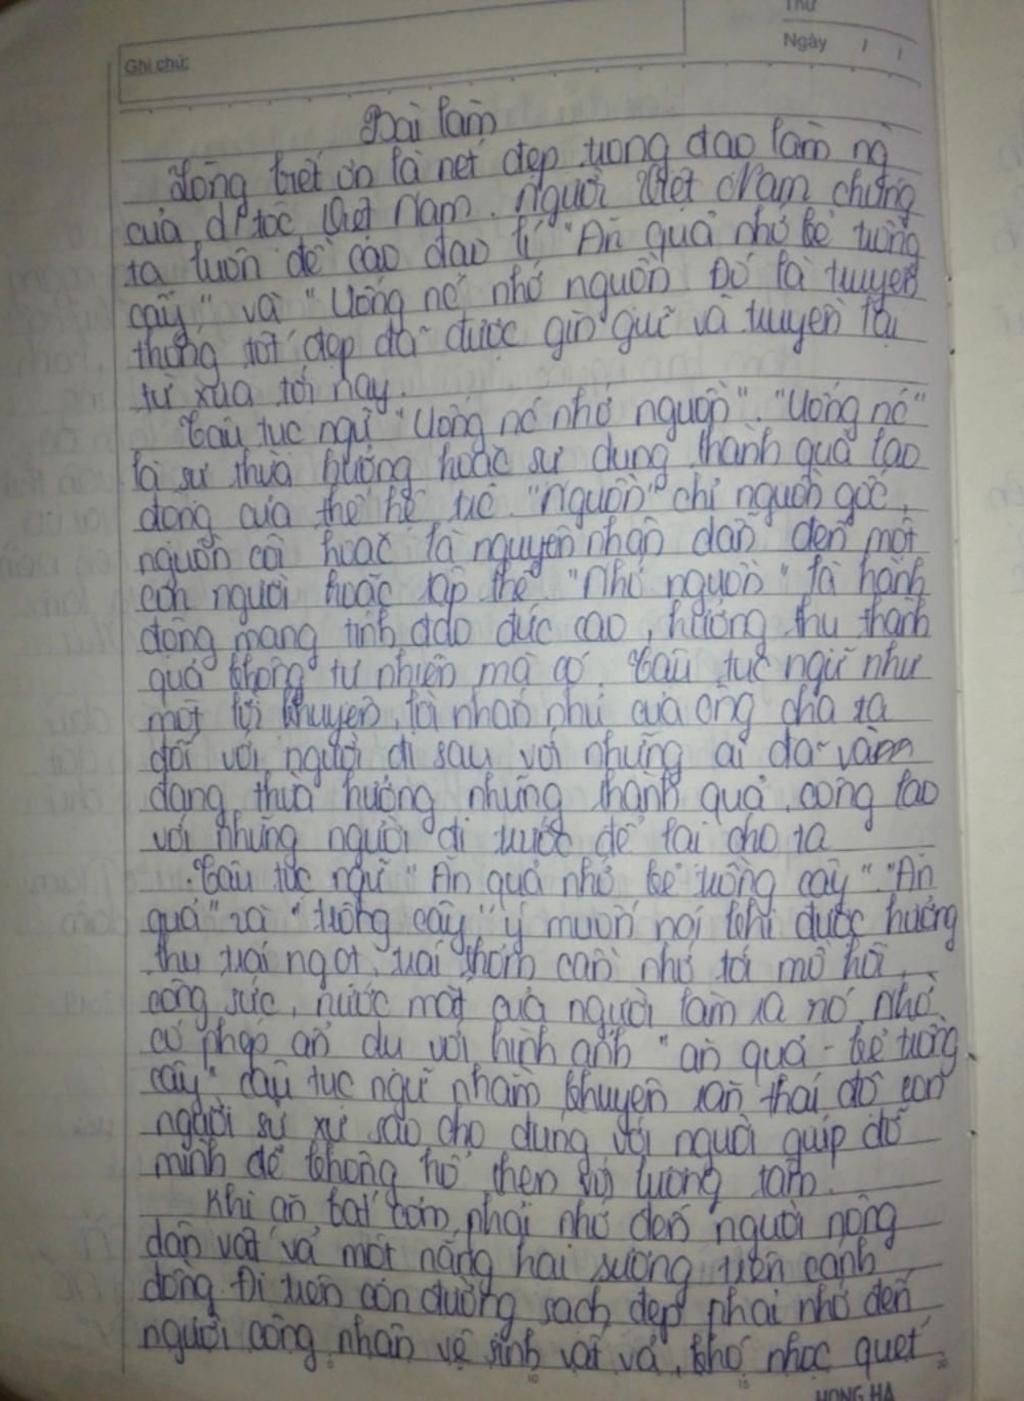 Thứ
Ngày / /
Ghi chú:
Bài làm
Lòng biết ơn là nét đẹp trong đạo làm ng
của dtộc Việt Nam. Người Việt Nam chúng
ta luôn đề cao đạo lí "Ăn quả nhớ kẻ trồng
cây" và "Uống nớ nhớ nguồn Đó là truyền
thống tốt đẹp đã được gìn giữ và truyền lại
từ xưa tới nay.
Câu tục ngữ "Uống nớ nhớ nguồn". "Uống nớ"
là sự thừa hưởng hoặc sử dụng thành quả lao
động của thế hệ trc. "Nguồn" chỉ nguồn gốc,
nguồn cội hoặc là nguyên nhân dẫn đến một
con người hoặc tập thể "Nhớ nguồn" là hành
động mang tính đạo đức cao, hưởng thụ thành
quả không tự nhiên mà có. Câu tục ngữ như
một lời khuyên, lời nhắn nhủ của ông cha ta
đối với người đi sau với những ai đã và
đang thừa hưởng những thành quả, công lao
với những người đi trước để lại cho ta
Câu tục ngữ "Ăn quả nhớ kẻ trồng cây" "Ăn
quả" và "trồng cây" ý muốn nói khi được hưởng
thụ trái ngọt, trái thơm cần nhớ tới mồ hôi,
công sức, nước mắt của người làm ra nó. Nhờ
có phép ẩn dụ với hình ảnh "ăn quả - kẻ trồng
cây" câu tục ngữ nhằm khuyên răn thái độ con
người sư xử sao cho đúng với người quíp đỡ
mình để không hổ thẹn với lương tâm.
Khi ăn bát cơm, phải nhớ đến người nông
dân vất vả một nắng hai sương trên cánh
đồng. Đi trên con đường sạch đẹp phải nhớ đến
người công nhân vệ sinh vất vả, khó nhọc quét
HONG HA